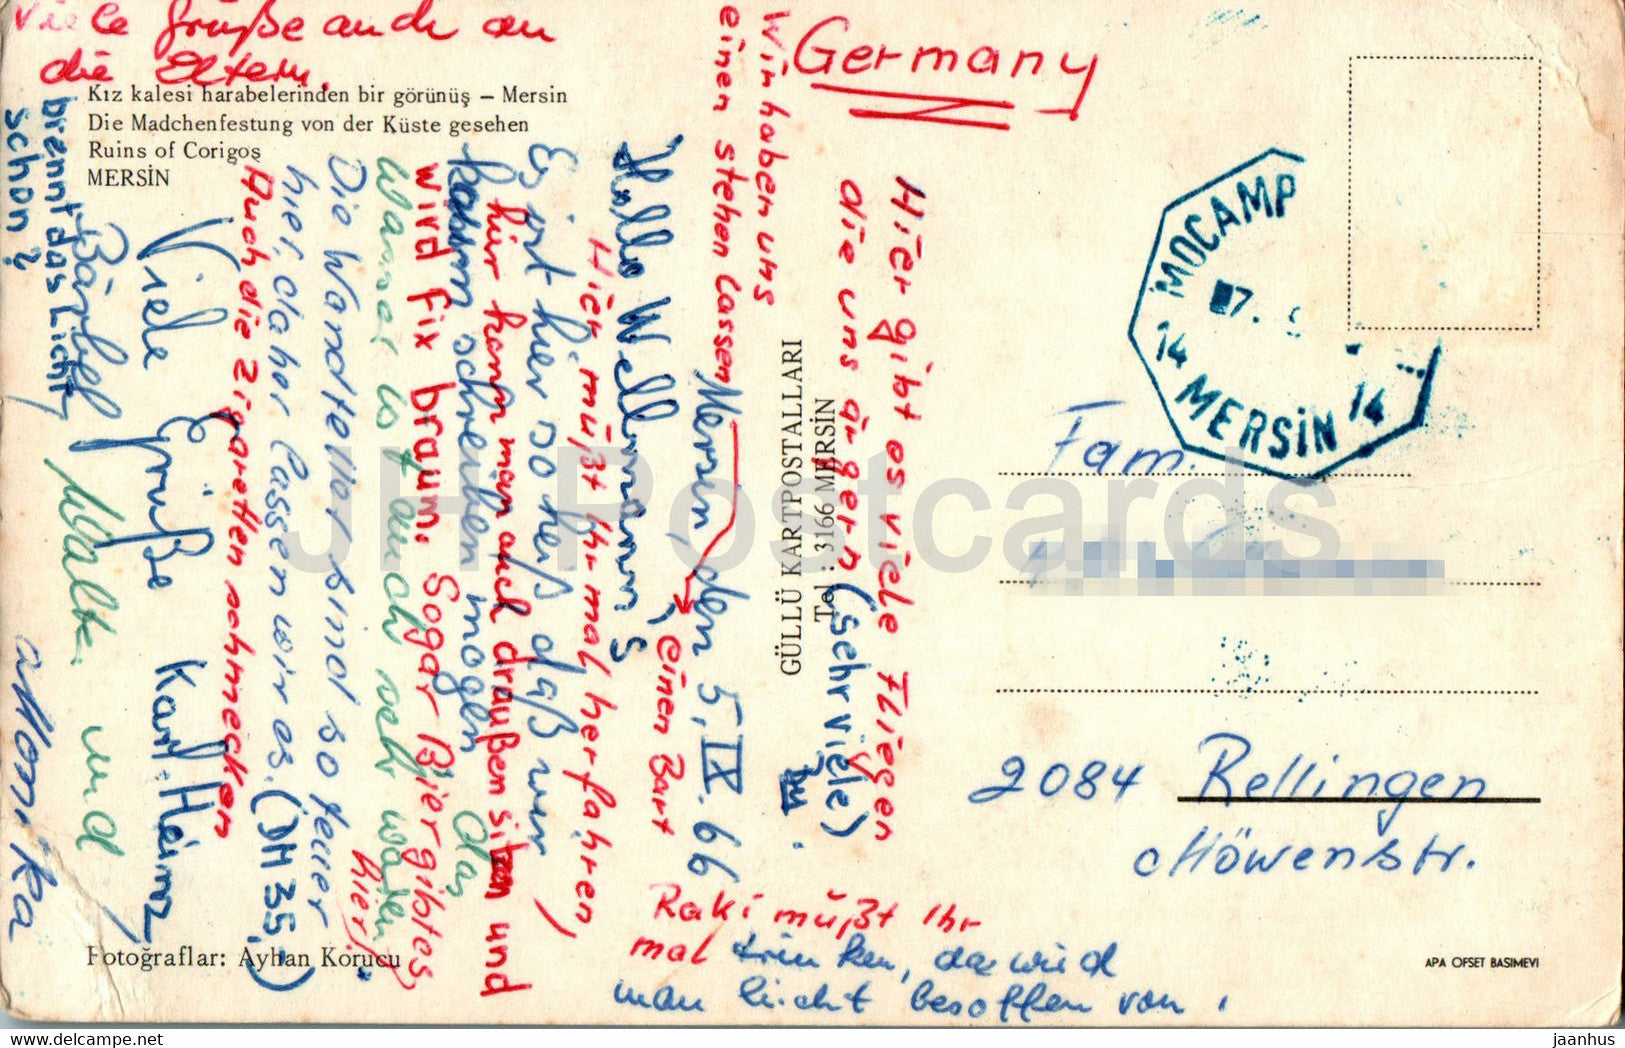 Viele Grüße auch an
die Eltern.
Kız kalesi harabelerinden bir görünüş – Mersin
Die Madchenfestung von der Küste gesehen
Ruins of Corigoş
MERSİN
Mersin, den 5. IX. 66
Hallo Wellmanns
Hier müßt Ihr mal herfahren,
Es ist hier so heiß daß wir
kaum schreiben mögen das
hier kann man auch draußen sitzen und
wird fix braun. Sogar Bier gibt es
hier.
Wasser is auch sehr warm
Die Wandteller sind so teuer
hier, daher lassen wir es. (DM 35,-)
Auch die Zigaretten schmecken
Viele Grüße Karl-Heinz
Bärbel Walter und
Monika
brennt das Licht
schon?
Wir haben uns
einen stehen lassen
einen Bart
Germany
Hier gibt es viele Fliegen
die uns ärgern (sehr viele)
Raki müßt Ihr
mal trinken, da wird
man leicht besoffen von.
GÜLLÜ KARTPOSTALLARI
Tel : 3166 MERSİN
MOCAMP
14 MERSİN 14
Fam.
2084 Rellingen
Möwenstr.
Fotoğraflar: Ayhan Korucu
APA OFSET BASIMEVI
JH Postcards
www.delcampe.net
jaanhus